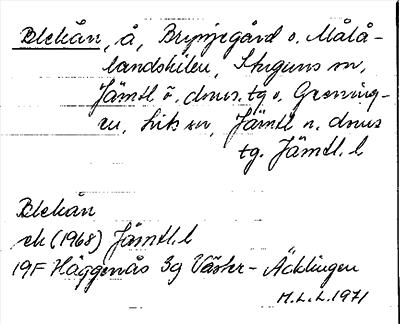 Blekån, å, Brynjegård o. Målå-
landskilen, Stuguns sn,
Jämtl ö. dnus. tg o. Grening-
en, Lits sn, Jämtl n. dnus
tg. Jämtl. l
Blekån
ek (1968) Jämtl. l
19F Häggenås 3g Väster-Acklingen
M.L.L. 1971